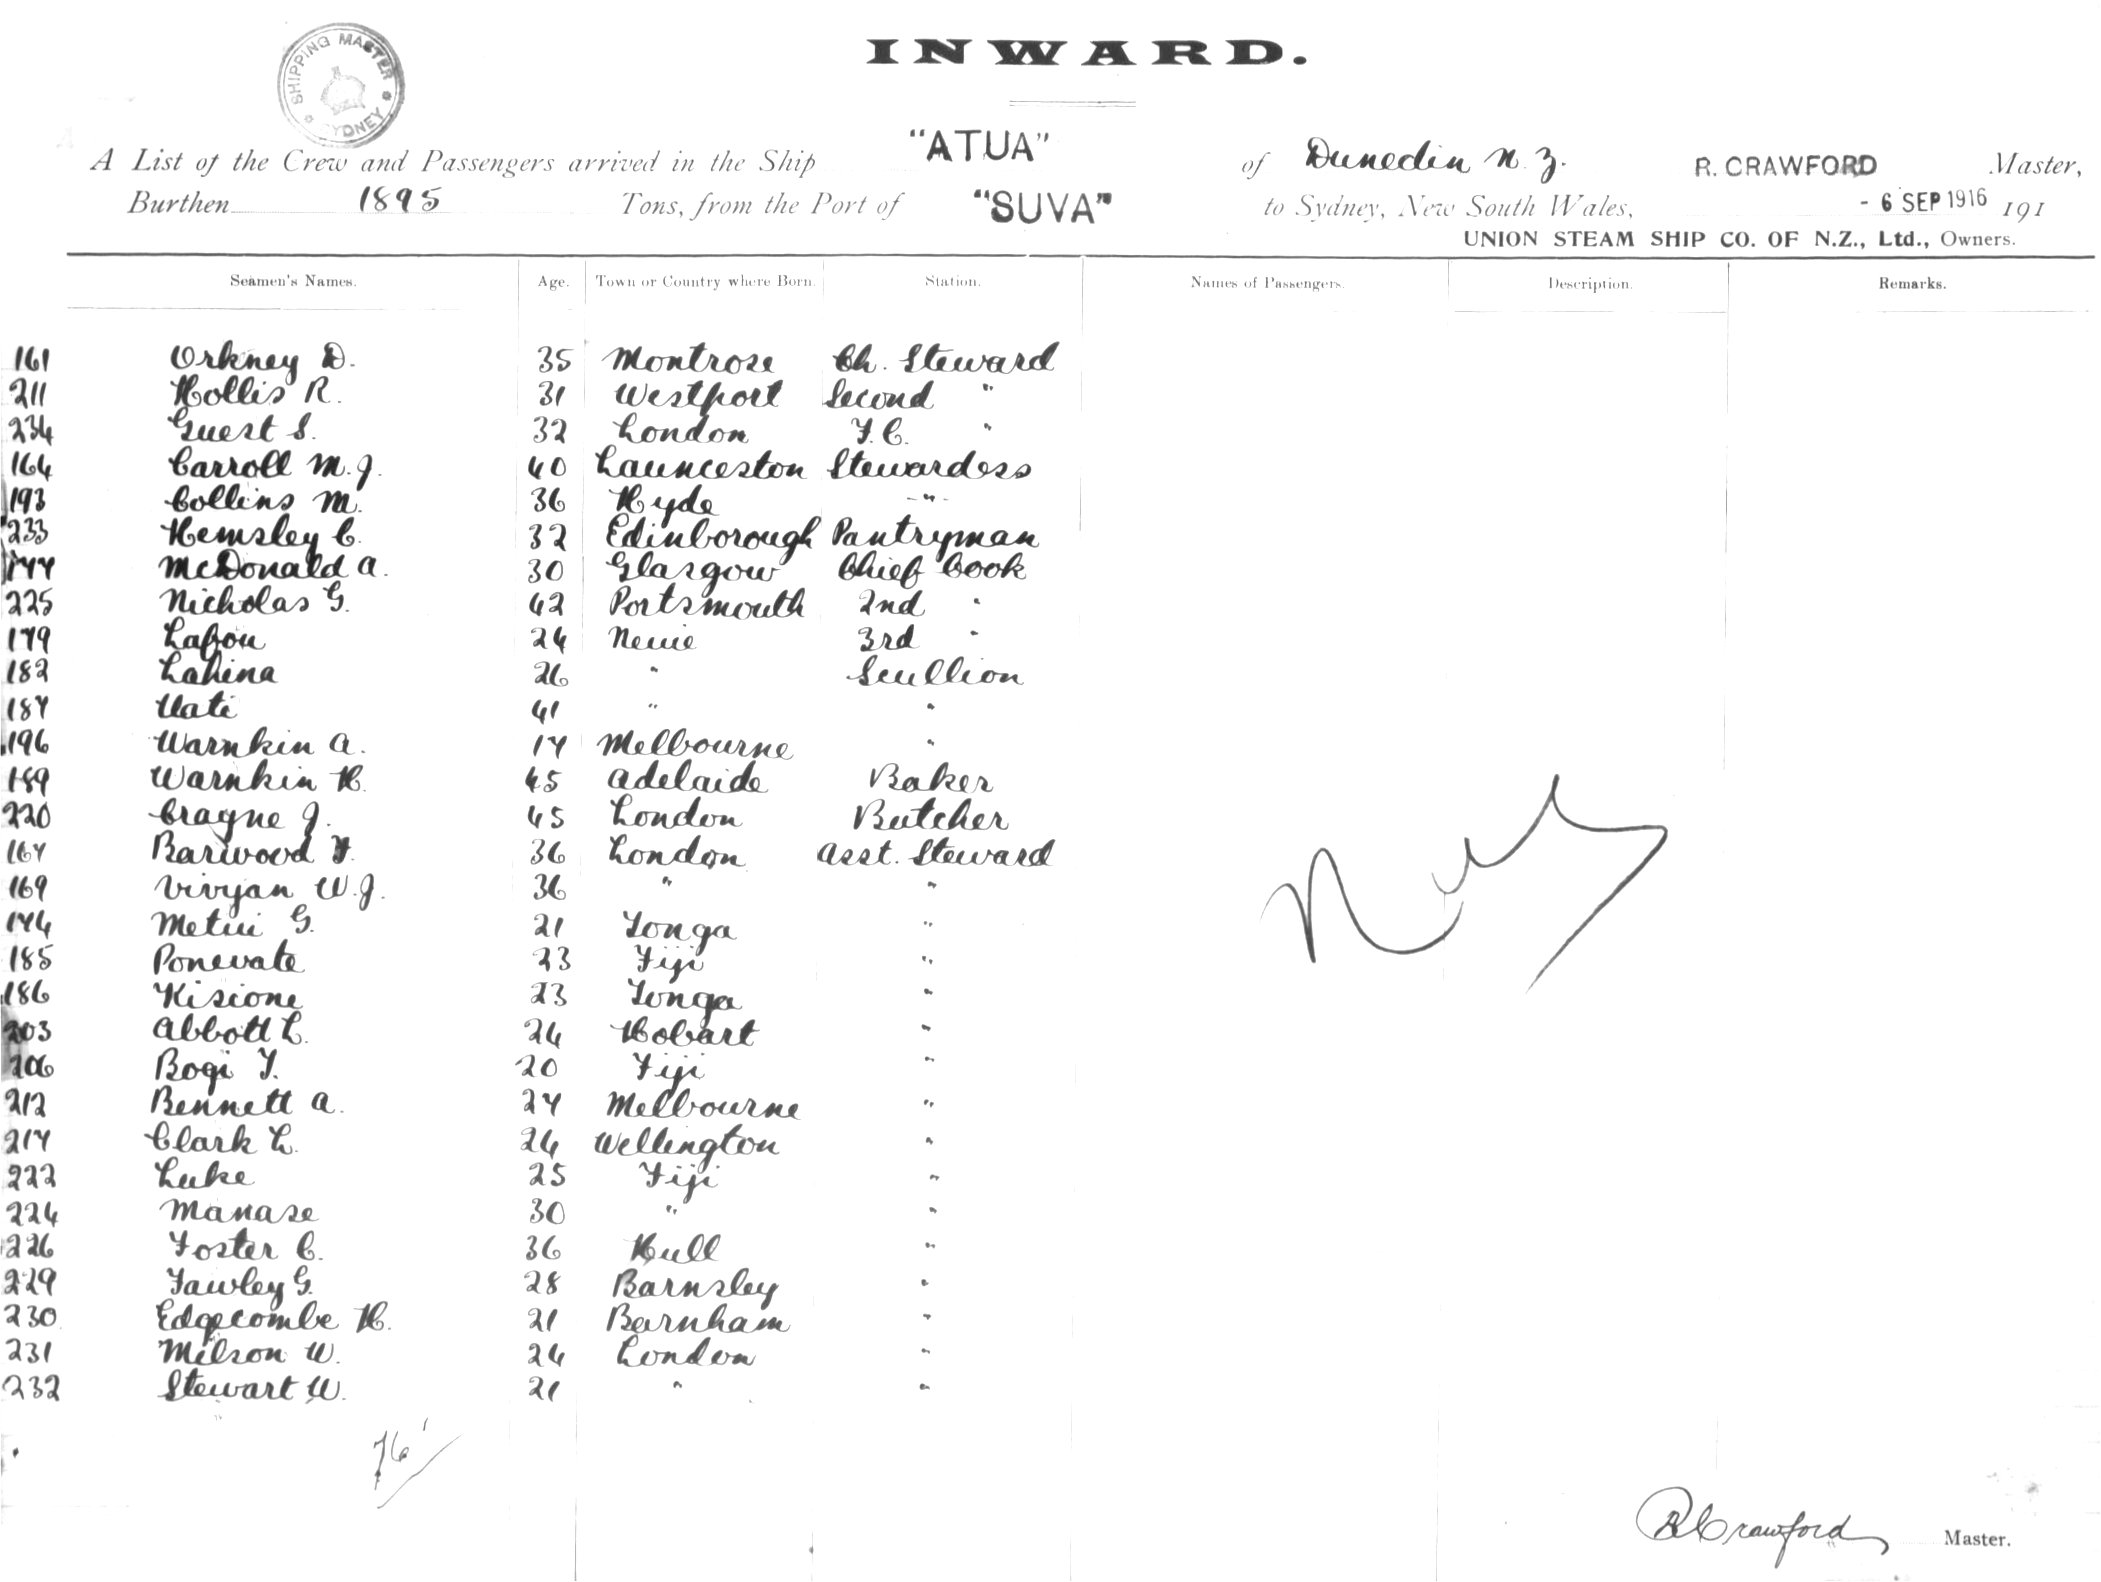 INWARD.
SHIPPING MASTER SYDNEY
A List of the Crew and Passengers arrived in the Ship "ATUA" of Dunedin N.Z. R. CRAWFORD Master,
Burthen 1895 Tons, from the Port of "SUVA" to Sydney, New South Wales, - 6 SEP 1916 191
UNION STEAM SHIP CO. OF N.Z., Ltd., Owners.
Seamen's Names. Age. Town or Country where Born. Station. Names of Passengers. Description. Remarks.
161 Orkney D. 35 Montrose Ch. Steward
211 Hollis R. 31 Westport Second "
234 Guest S. 32 London F.C. "
164 Carroll M.J. 40 Launceston Stewardess
193 Collins M. 36 Hyde -"-
233 Hemsley C. 32 Edinborough Pantryman
177 McDonald A. 30 Glasgow Chief Cook
225 Nicholas G. 42 Portsmouth 2nd "
179 Lafou 24 Neuie 3rd "
182 Lahina 26 " Scullion
187 Uati 41 " "
196 Warnkin A. 17 Melbourne "
189 Warnkin H. 45 Adelaide Baker
220 Crayne J. 45 London Butcher
167 Barwood F. 36 London Asst. Steward
169 Vivyan W.J. 36 " "
174 Metui G. 21 Tonga "
185 Ponevate 23 Fiji "
186 Kisione 23 Tonga "
203 Abbott L. 24 Hobart "
206 Bogi T. 20 Fiji "
212 Bennett A. 27 Melbourne "
217 Clark L. 24 Wellington "
222 Luke 25 Fiji "
224 Manase 30 " "
226 Foster C. 36 Hull "
229 Fawley G. 28 Barnsley "
230 Edgecombe H. 21 Barnham "
231 Milson W. 24 London "
232 Stewart W. 21 " "
76
RCrawford Master.